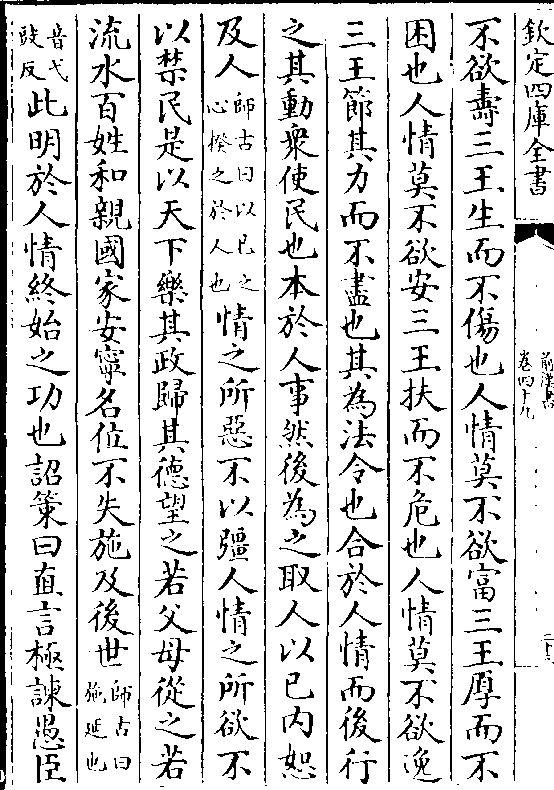 欽定四庫全書
前漢書
卷四十九
不欲壽三王生而不傷也人情莫不欲富三王厚而不
困也人情莫不欲安三王扶而不危也人情莫不欲逸
三王節其力而不盡也其為法令也合於人情而後行
之其動衆使民也本於人事然後為之取人以已内恕
及人師古曰以已之心揆之於人也情之所惡不以彊人情之所欲不
以禁民是以天下樂其政歸其德望之若父母從之若
流水百姓和親國家安寧名位不失施及後世師古曰施延也
音弋豉反此明於人情終始之功也詔策曰直言極諫愚臣